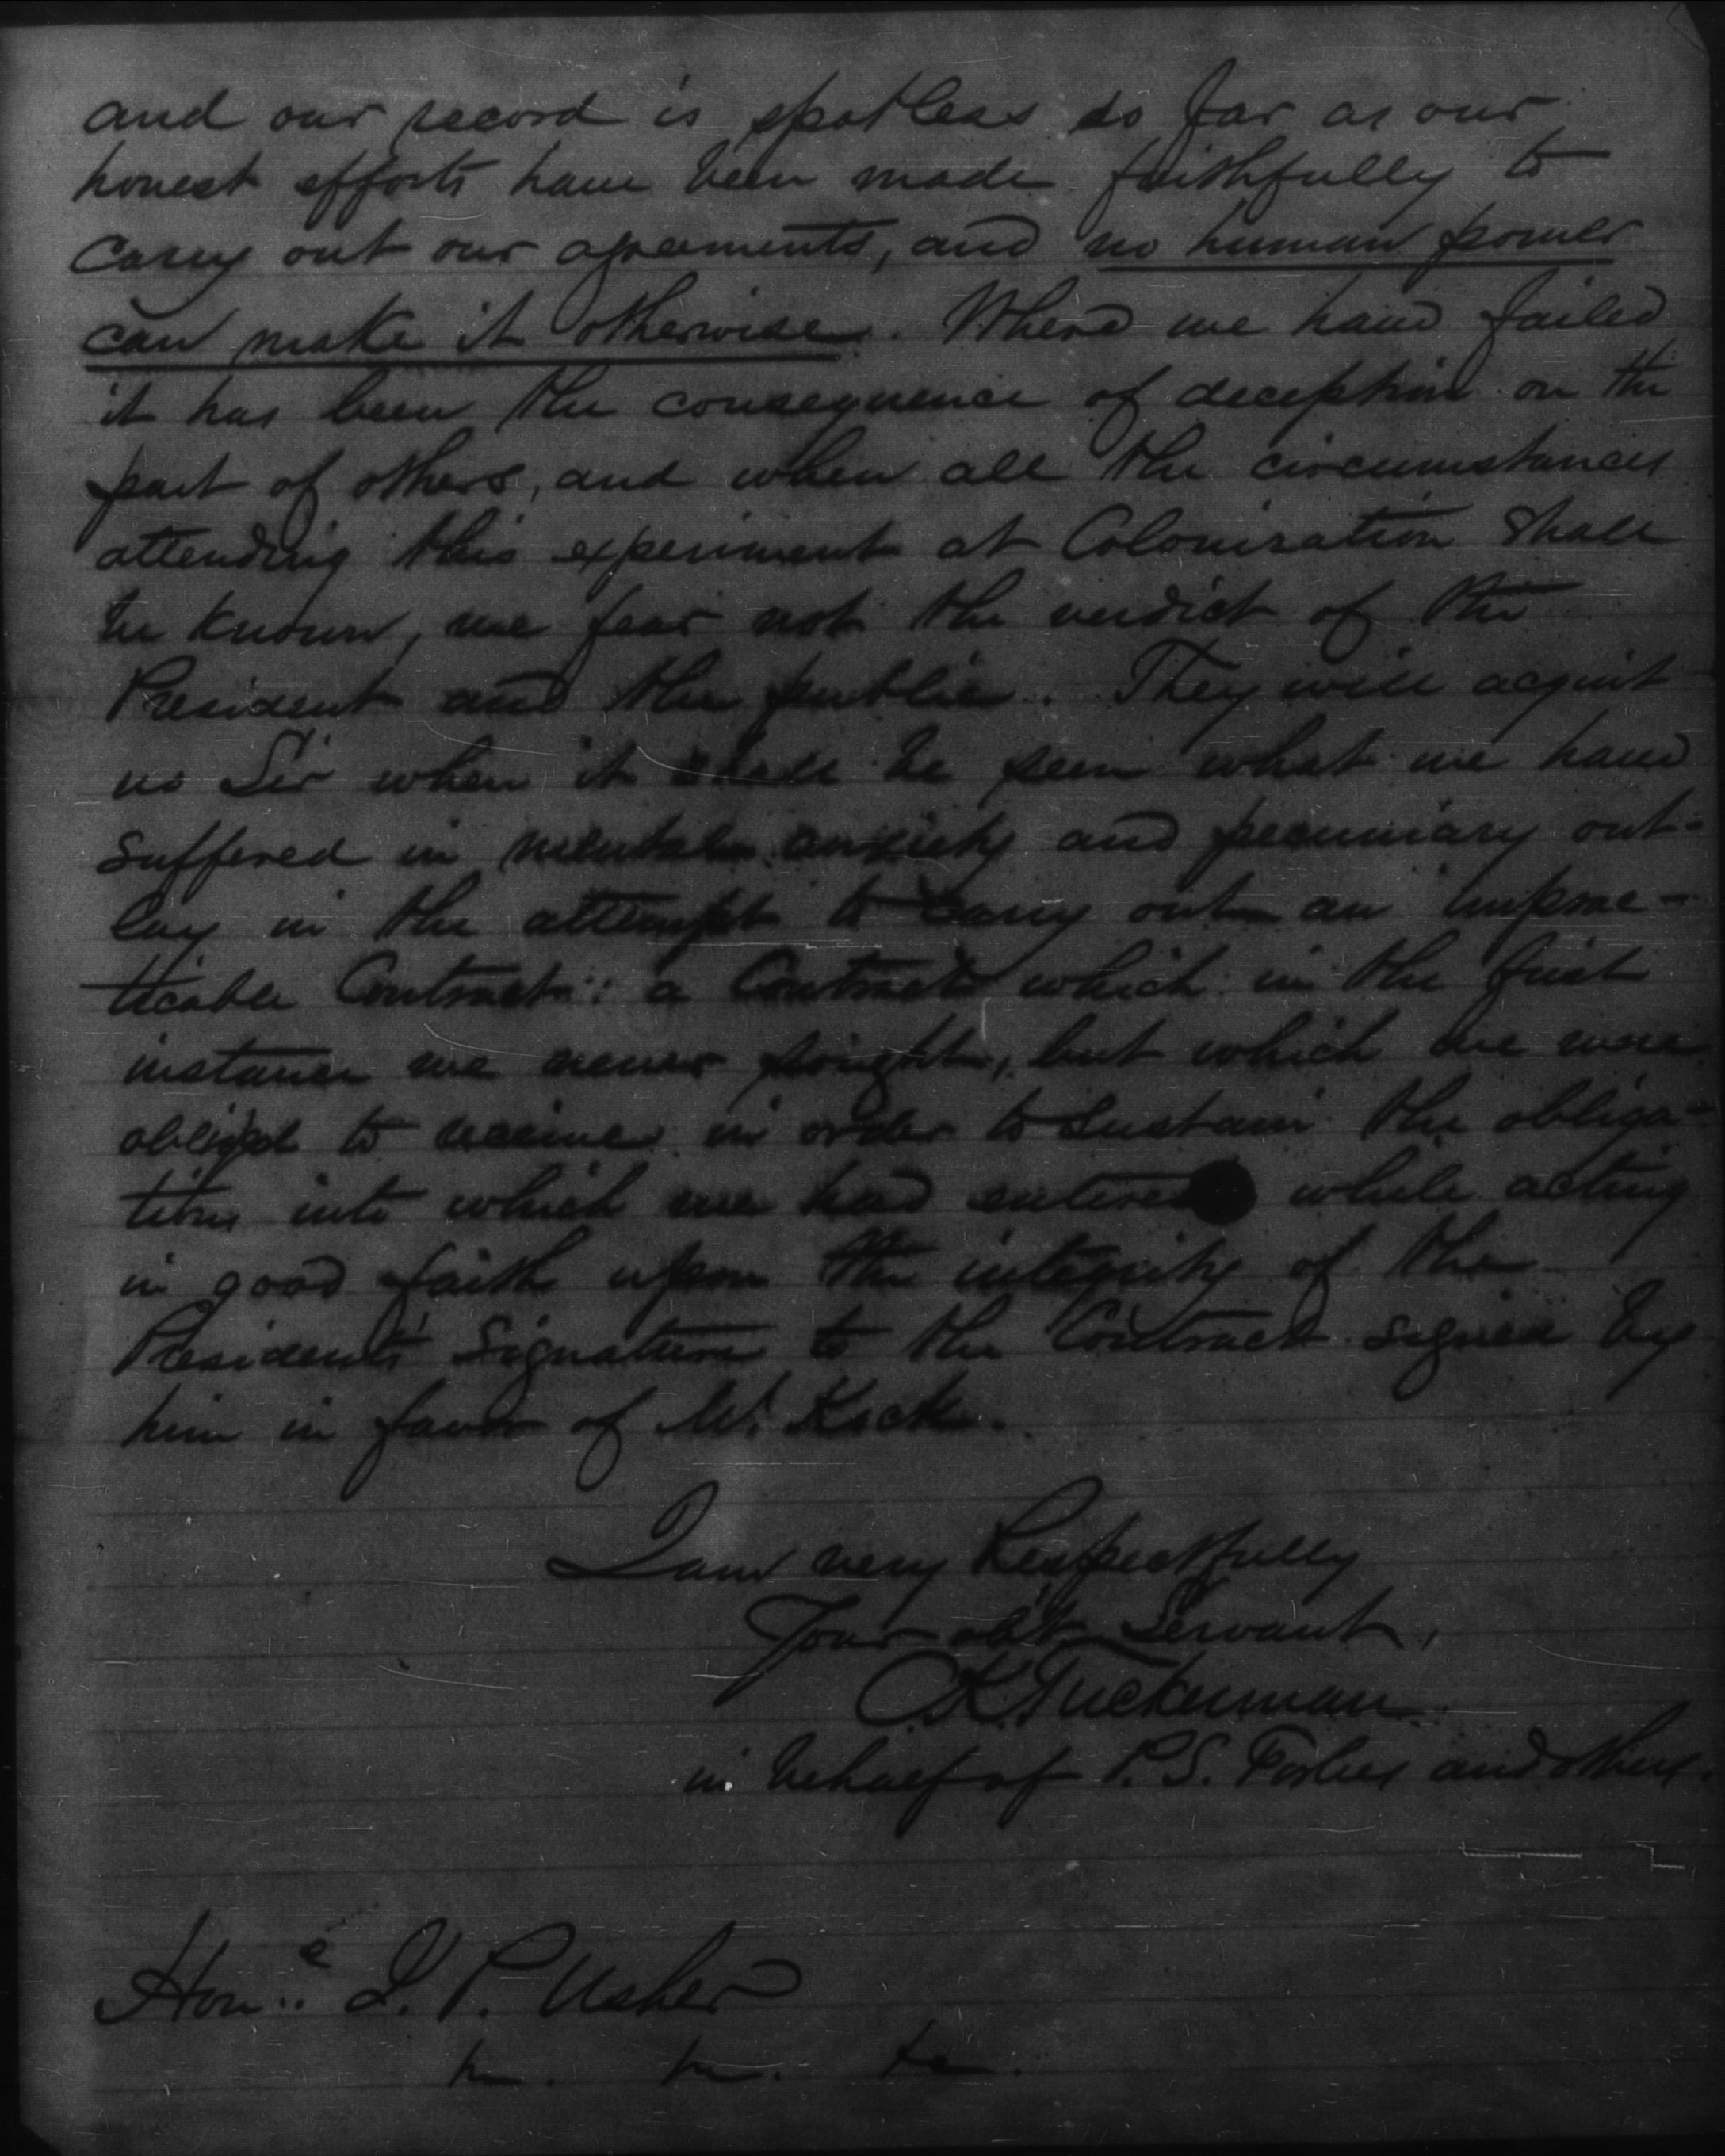 and our record is spotless so far as our
honest efforts have been made faithfully to
carry out our agreements, and no human power
can make it otherwise. Where we have failed
it has been the consequence of deception on the
part of others, and when all the circumstances
attending this experiment at Colonization shall
be known, we fear not the verdict of the
President and the public. They will acquit
us Sir when it shall be seen what we have
suffered in mental anxiety and pecuniary out-
lay in the attempt to carry out an imprac-
ticable Contract: a Contract which in the first
instance we never sought, but which we were
obliged to receive in order to sustain the obliga-
tions into which we had entered while acting
in good faith upon the integrity of the
President's signature to the Contract signed by
him in favor of Mr. Kock.
I am very Respectfully
Your obt Servant,
C.K. Tuckerman
in behalf of P.S. Forbes and others.
Honle J. P. Usher
&c. &c. &c.